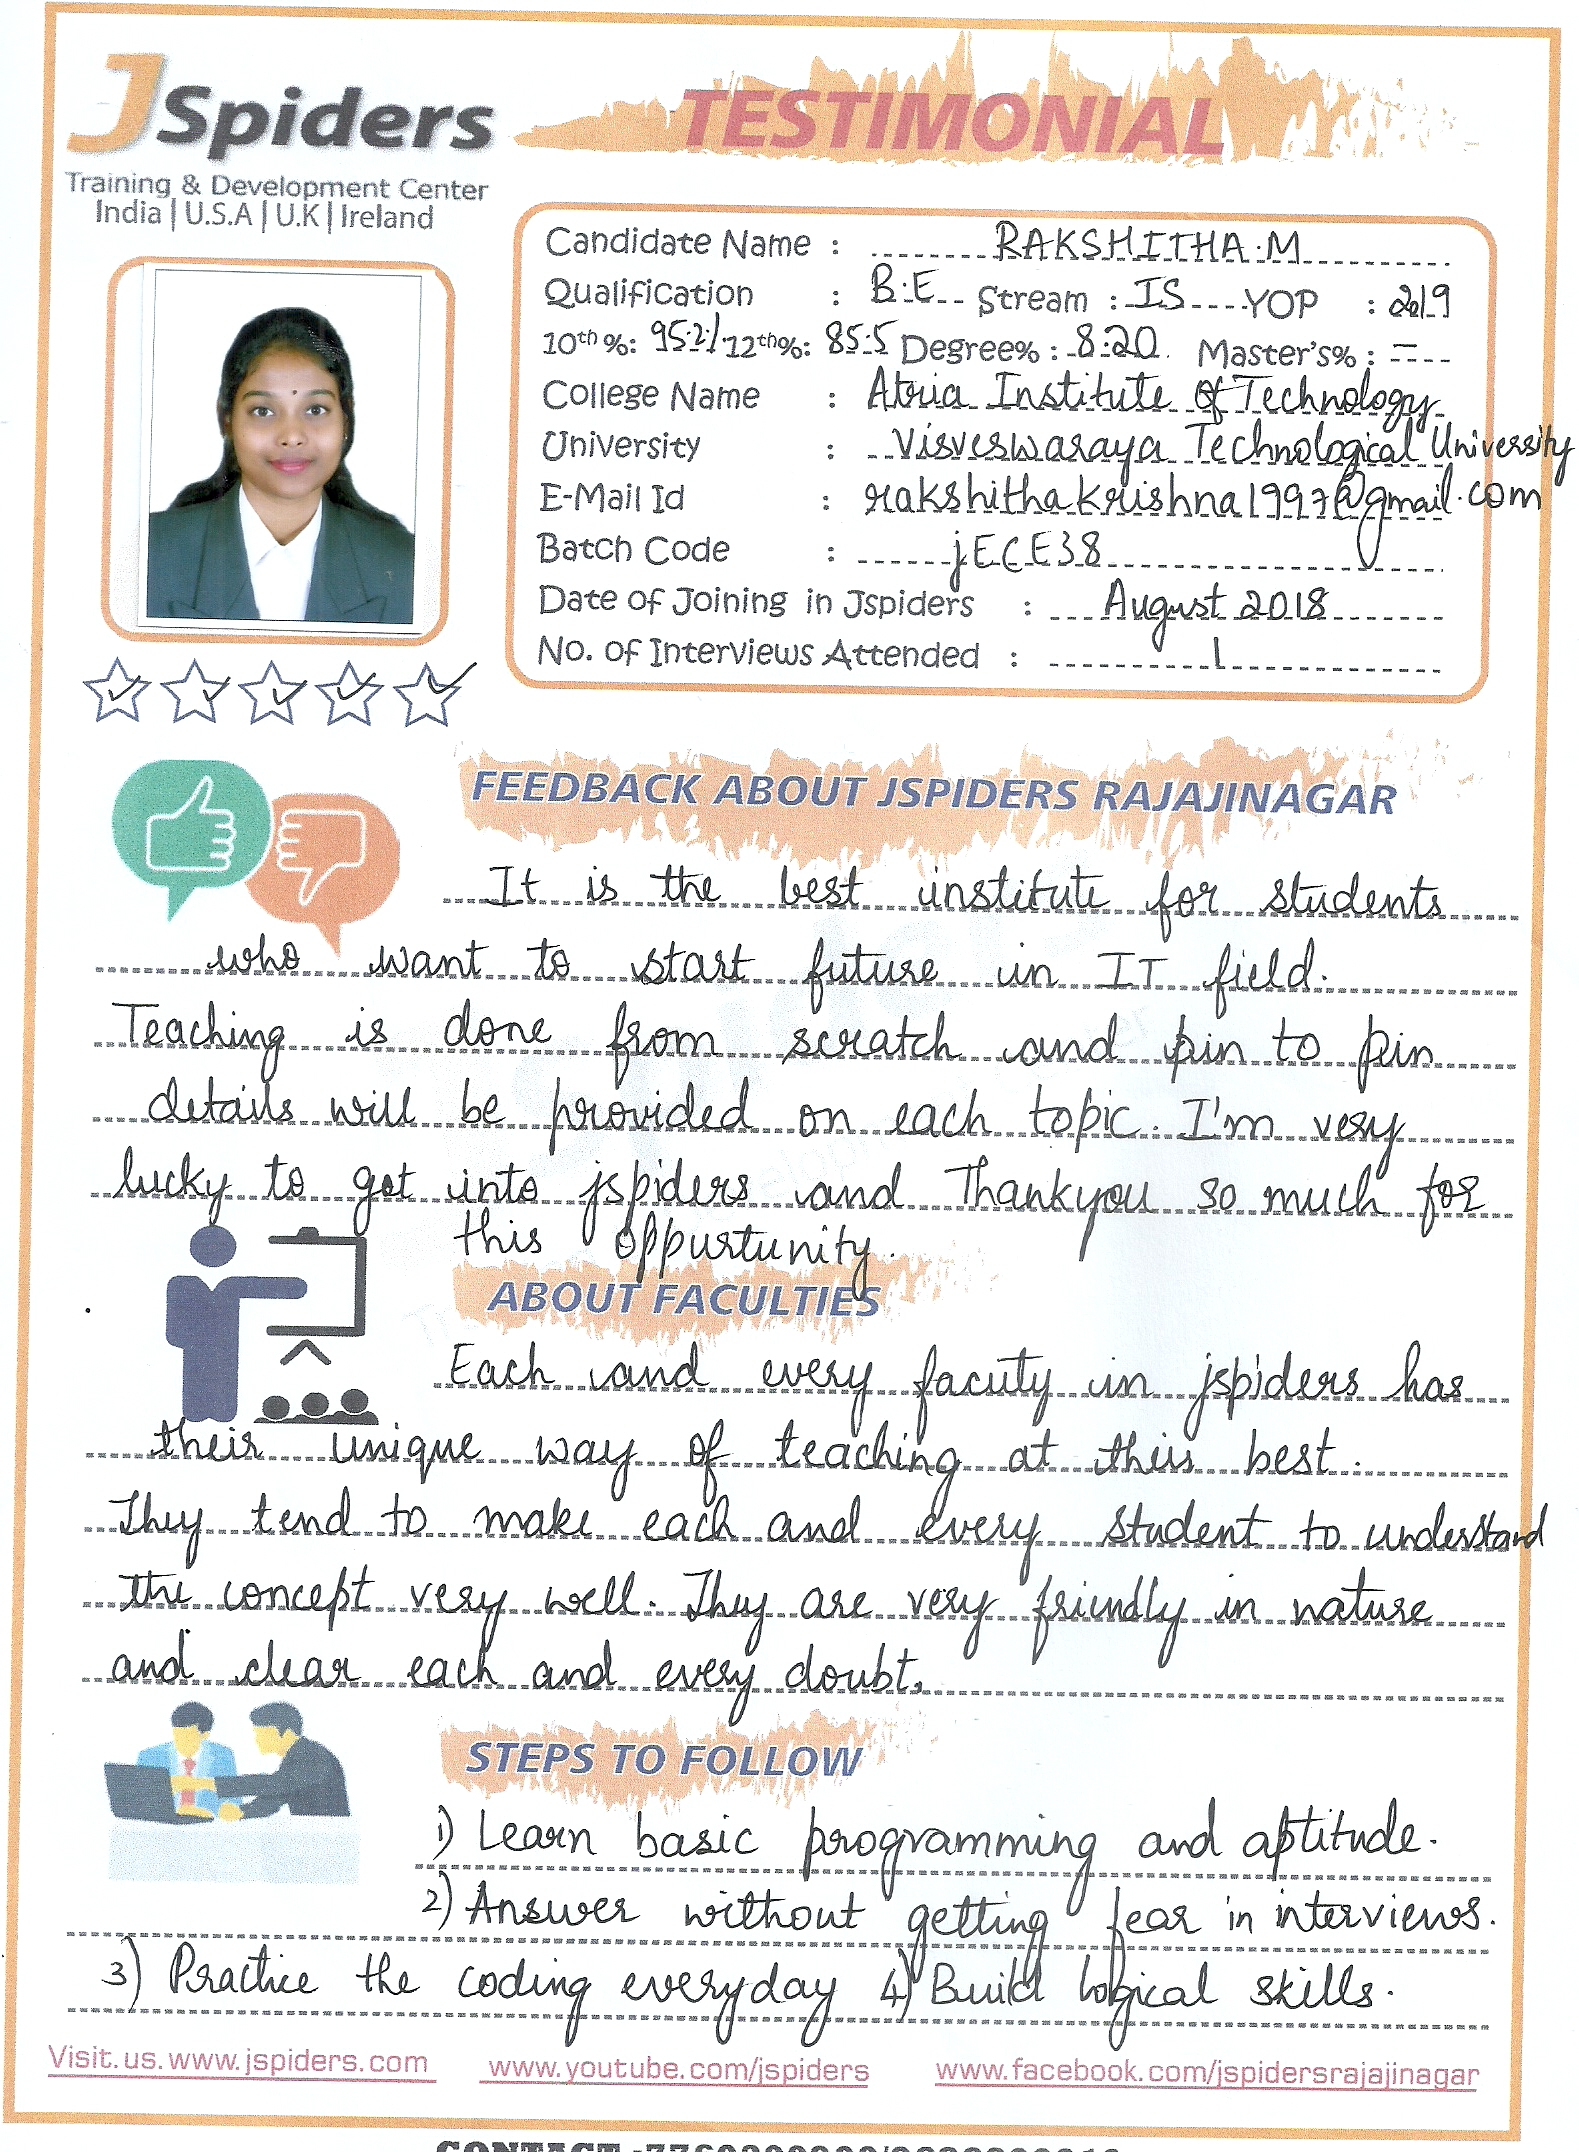 JSpiders
TESTIMONIAL
Training & Development Center
India | U.S.A | U.K | Ireland
Candidate Name : RAKSHITHA.M
Qualification : B.E Stream : IS YOP : 2019
10th %: 95.2% 12th%: 85.5 Degree% : 8.20 Master's% : --
College Name : Atria Institute Of Technology
University : Visveswaraya Technological University
E-Mail Id : rakshithakrishna1997@gmail.com
Batch Code : jECE38
Date of Joining in Jspiders : August 2018
No. of Interviews Attended : 1
FEEDBACK ABOUT JSPIDERS RAJAJINAGAR
It is the best institute for students
who want to start future in IT field.
Teaching is done from scratch and pin to pin
details will be provided on each topic. I'm very
lucky to get into jspiders and Thankyou so much for
this oppurtunity.
ABOUT FACULTIES
Each and every facuty in jspiders has
their unique way of teaching at their best.
They tend to make each and every student to understand
the concept very well. They are very friendly in nature
and clear each and every doubt.
STEPS TO FOLLOW
1) Learn basic programming and aptitude.
2) Answer without getting fear in interviews.
3) Practice the coding everyday 4) Build logical skills.
Visit.us.www.jspiders.com www.youtube.com/jspiders www.facebook.com/jspidersrajajinagar